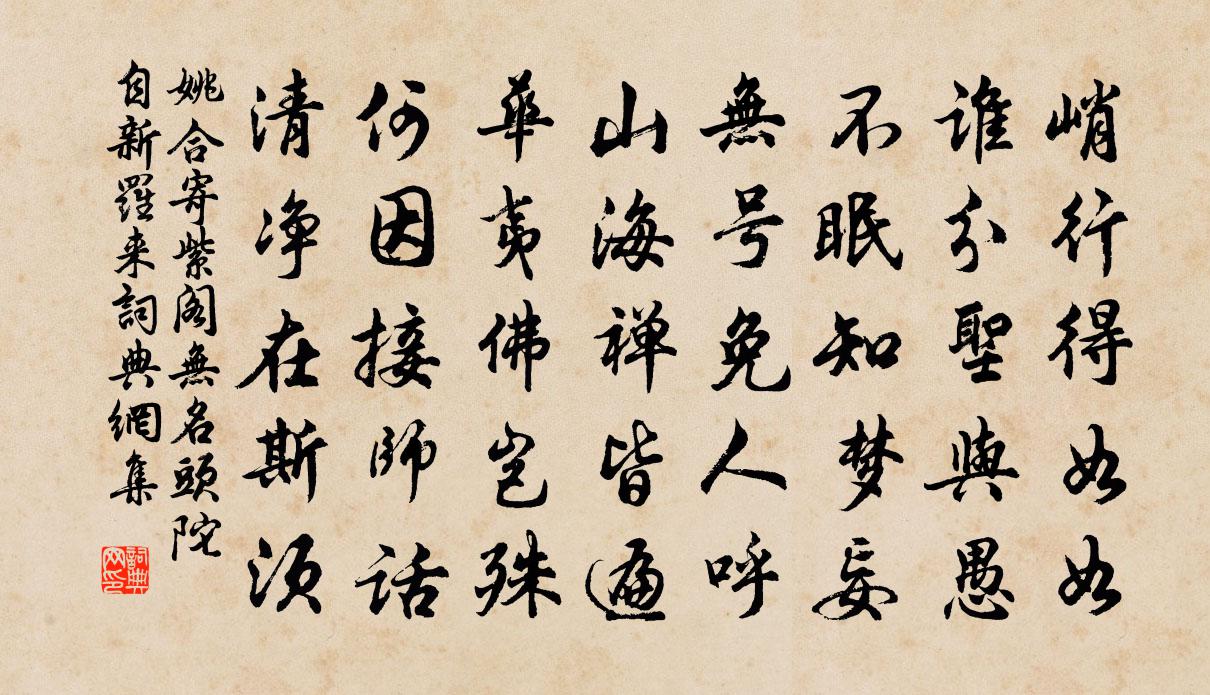 峭行得如如
谁分聖與愚
不眠知梦妄
無号免人呼
山海禅皆遍
華夷佛岂殊
何因接師话
清净在斯須
姚合寄紫阁無名頭陀
自新羅来詞典網集
詞典网印